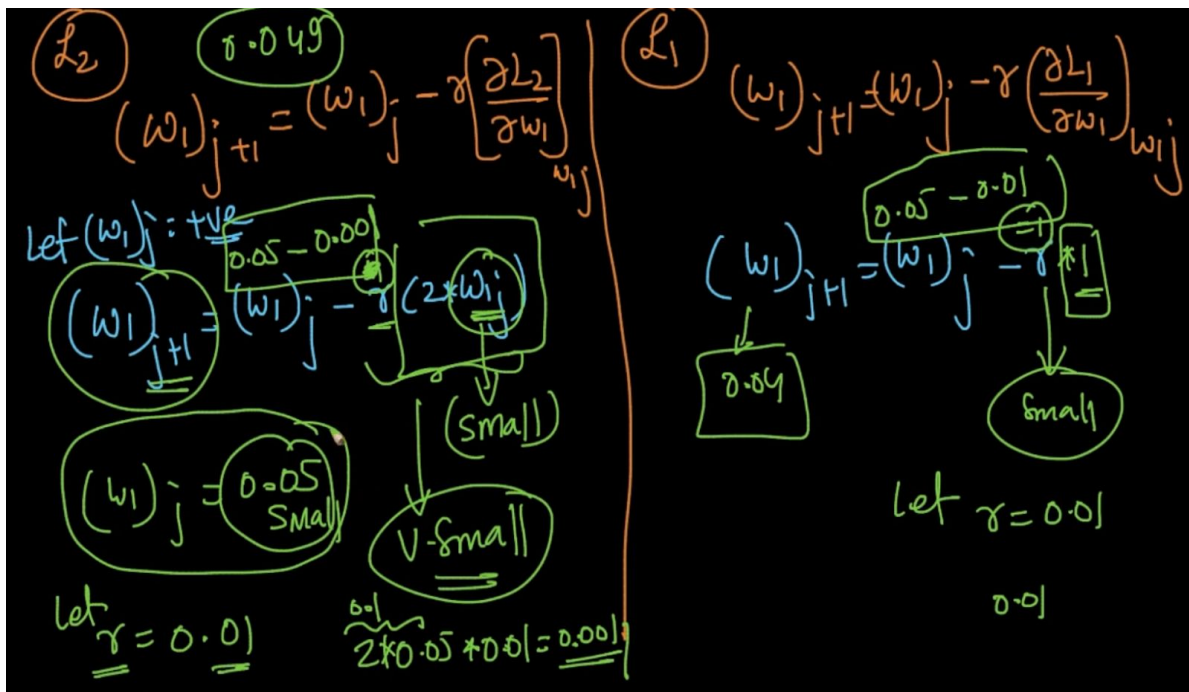 L₂
0.049
(ω₁)j+1 = (ω₁)j - r[∂L₂/∂w₁]w₁j
Let (ω₁)j : +ve
0.05 - 0.001
(ω₁)j+1 = (ω₁)j - r(2*W₁j)
(small)
(ω₁)j = 0.05
SMall
V-Small
Let r = 0.01
0.1
2*0.05*0.01 = 0.001
L₁
(ω₁)j+1 = (ω₁)j - r(∂L₁/∂w₁)w₁j
0.05 - 0.01
(ω₁)j+1 = (ω₁)j - r *1
0.04
Small
Let r = 0.01
0.01